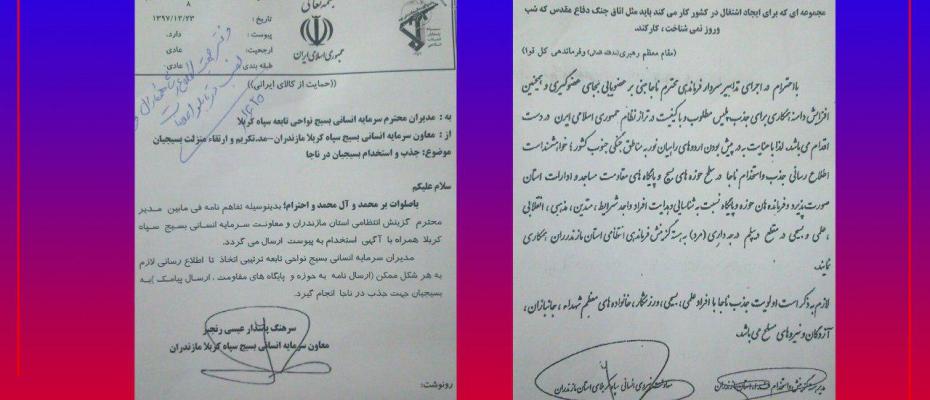 بسمه تعالی
۸
تاریخ : ۱۳۹۷/۱۲/۲۳
پیوست : دارد.
ارجحیت: عادی
طبقه بندی : عادی
جمهوری اسلامی ایران
((حمایت از کالای ایرانی))
به : مدیران محترم سرمایه انسانی بسیج نواحی تابعه سپاه کربلا
از : معاون سرمایه انسانی بسیج سپاه کربلا مازندران-مد.تکریم و ارتقاء منزلت بسیجیان
موضوع: جذب و استخدام بسیجیان در ناجا
سلام علیکم
باصلوات بر محمد و آل محمد و احترام؛ بدینوسیله تفاهم نامه فی مابین مدیر
محترم گزینش انتظامی استان مازندران و معاونت سرمایه انسانی بسیج سپاه
کربلا همراه با آگهی استخدام به پیوست ارسال می گردد.
مدیران سرمایه انسانی بسیج نواحی تابعه ترتیبی اتخاذ تا اطلاع رسانی لازم
به هر شکل ممکن (ارسال نامه به حوزه و پایگاه های مقاومت ، ارسال پیامک )به
بسیجیان جهت جذب در ناجا انجام گیرد.
سرهنگ پاسدار عیسی رنجبر
معاون سرمایه انسانی بسیج سپاه کربلا مازندران
رونوشت:
مجموعه ای که برای ایجاد اشتغال در کشور کار می کند باید مثل اتاق جنگ دفاع مقدس که شب
وروز نمی شناخت ، کارکند.
(مقام معظم رهبری(مدظله العالی) وفرماندهی کل قوا)
بااحترام در اجرای تدابیر سردار فرماندهی محترم ناجا مبنی بر عضویابی بجای عضوگیری و همچنین
افزایش دامنه همکاری برای جذب پلیس مطلوب و باکیفیت در تراز نظام جمهوری اسلامی ایران در دست
اقدام می باشد. لذا با عنایت به در پیش بودن اردوهای راهیان نور به مناطق جنگی جنوب کشور خواهشمند است
اطلاع رسانی جذب و استخدام ناجا در سطح حوزه های بسیج و پایگاه های مقاومت مساجد و ادارات استان
صورت پذیرد و فرمانده هان حوزه و پایگاه نسبت به شناسایی و هدایت افراد واجد شرایط ، متدین ، مذهبی ، انقلابی
، علمی و بسیجی در مقطع دیپلم درجه داری (مرد) به هسته گزینش فرماندهی انتظامی استان مازندران همکاری
نمایند.
لازم به ذکر است اولویت جذب ناجا با افراد علمی ، بسیجی ، ورزشکار ، خانواده های معظم شهداء ، جانبازان ،
آزادگان و نیروهای مسلح می باشد.
معاونت نیروی انسانی سپاه کربلای استان مازندران
مدیر هسته گزینش و استخدام استان مازندران